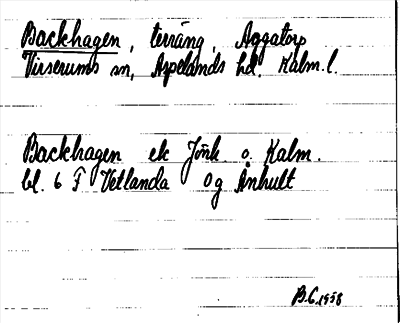 Backhagen, terräng, Aggatorp
Virserums sn, Aspelands hd. Kalm. l.
Backhagen ek Jönk o. Kalm.
bl. 6 F Vetlanda 0g Ånhult
B.G. 1958